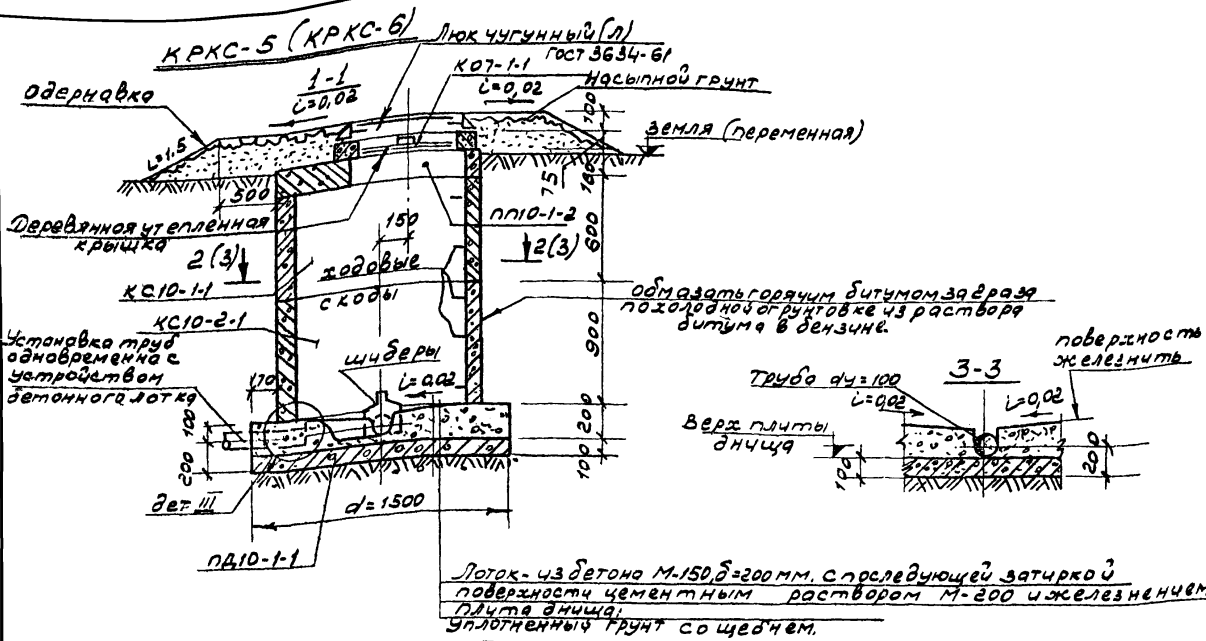 КРКС-5 (КРКС-6)
Люк чугунный (Л)
ГОСТ 3634-61
1-1
i=0,02
КО7-1-1
i=0,02
насыпной грунт
одерновка
100
Земля (переменная)
i=1,5
75
160
500
Деревянная утепленная
крышка
150
ПП10-1-2
600
2(3)
2(3)
ходовые
скобы
КС10-1-1
обмазать горячим битумом за 2 раза
по холодной огрунтовке из раствора
битума в бензине.
КС10-2-1
900
Установка труб
одновременно с
устройством
бетонного лотка
шиберы
i=0,02
70
100
200
200
100
дет. III
d=1500
ПД10-1-1
поверхность
железнить
3-3
Труба dу=100
i=0,02
i=0,02
Верх плиты
днища
100
200
Лоток-из бетона М-150, δ=200мм. с последующей затиркой
поверхности цементным раствором М-200 и железнением
плита днища;
уплотненный грунт со щебнем.